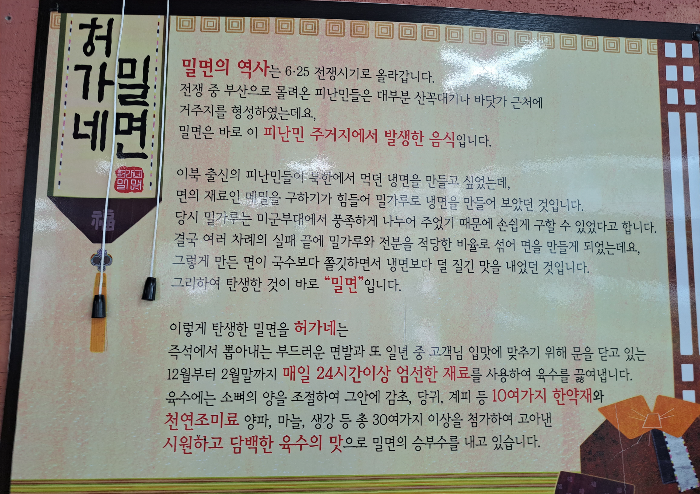 허가네
밀면
福
밀면의 역사는 6·25 전쟁시기로 올라갑니다.
전쟁 중 부산으로 몰려온 피난민들은 대부분 산꼭대기나 바닷가 근처에
거주지를 형성하였는데요,
밀면은 바로 이 피난민 주거지에서 발생한 음식입니다.
이북 출신의 피난민들이 북한에서 먹던 냉면을 만들고 싶었는데,
면의 재료인 메밀을 구하기가 힘들어 밀가루로 냉면을 만들어 보았던 것입니다.
당시 밀가루는 미군부대에서 풍족하게 나누어 주었기 때문에 손쉽게 구할 수 있었다고 합니다.
결국 여러 차례의 실패 끝에 밀가루와 전분을 적당한 비율로 섞어 면을 만들게 되었는데요,
그렇게 만든 면이 국수보다 쫄깃하면서 냉면보다 덜 질긴 맛을 내었던 것입니다.
그리하여 탄생한 것이 바로 “밀면”입니다.
이렇게 탄생한 밀면을 허가네는
즉석에서 뽑아내는 부드러운 면발과 또 일년 중 고객님 입맛에 맞추기 위해 문을 닫고 있는
12월부터 2월말까지 매일 24시간이상 엄선한 재료를 사용하여 육수를 끓여냅니다.
육수에는 소뼈의 양을 조절하여 그안에 감초, 당귀, 계피 등 10여가지 한약재와
천연조미료 양파, 마늘, 생강 등 총 30여가지 이상을 첨가하여 고아낸
시원하고 담백한 육수의 맛으로 밀면의 승부수를 내고 있습니다.